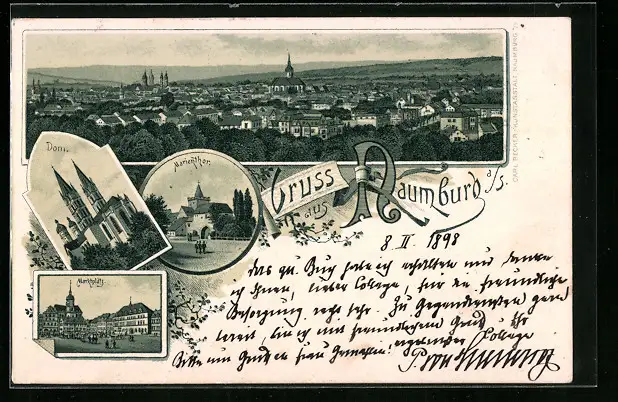 Dom.
Marienthor.
Marktplatz
Gruss aus Naumburg a/S.
CARL BECKER, KUNSTANSTALT, NAUMBURG
8. II. 1898
Das gü. Buch habe ich erhalten und danke
ich Ihnen, lieber College, für die freundliche
Besorgung recht sehr. Zu Gegendiensten gern
bereit, bin ich mit freundlichem Gruß Ihr
ergebener College
Bitte um Gruß an Frau Gemahlin!
P. von